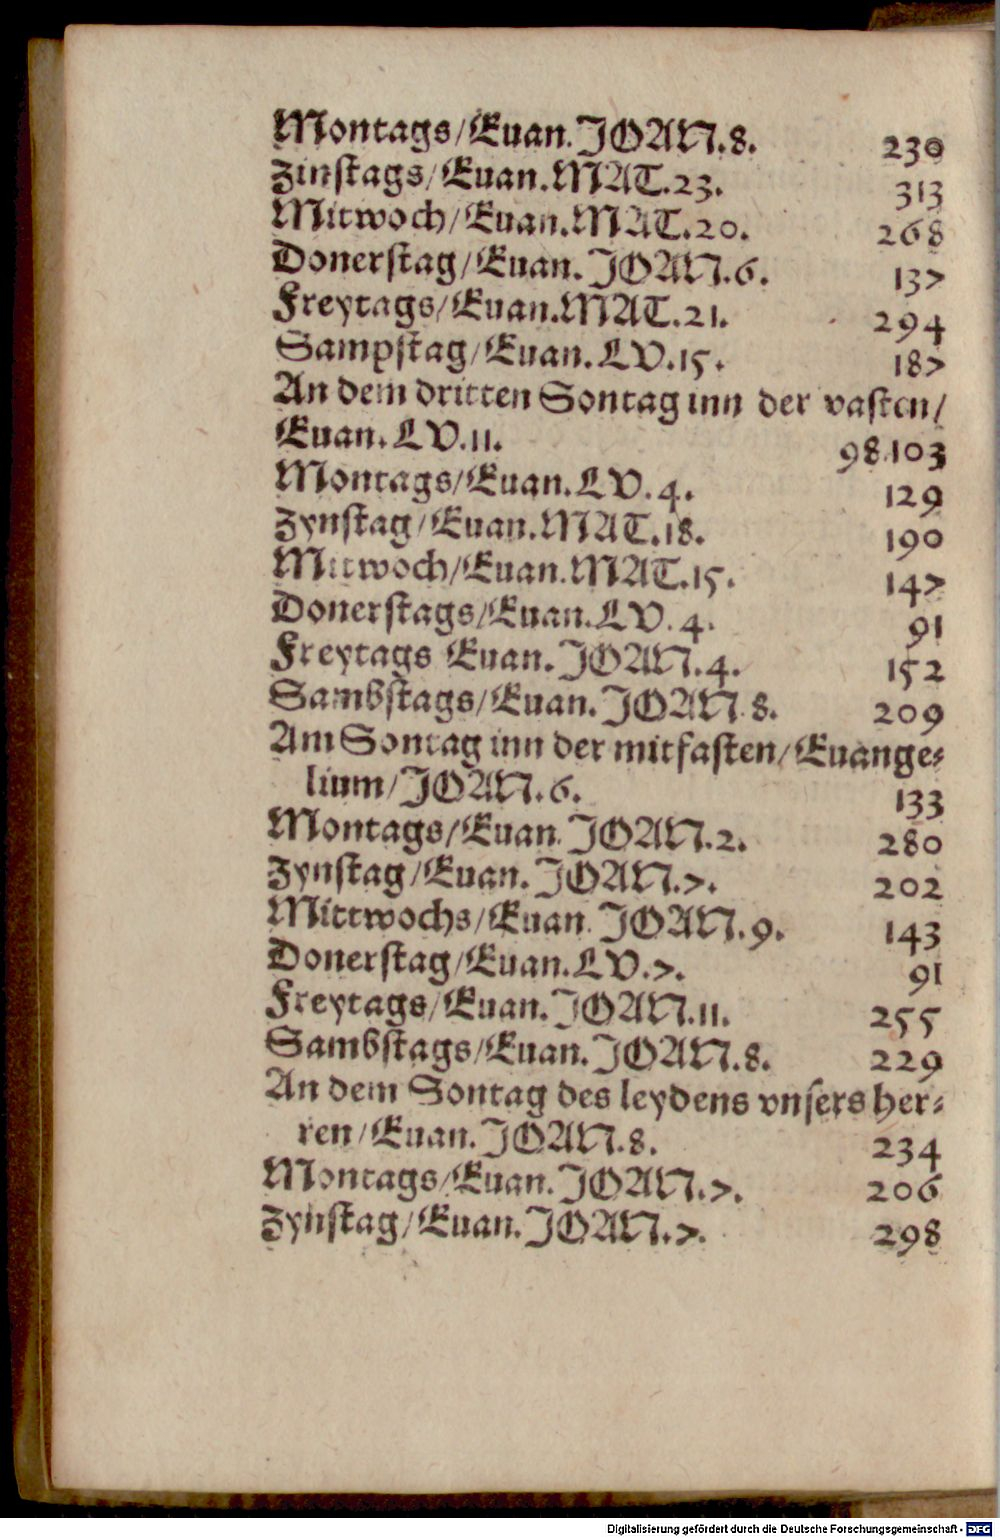 Montags/Euan. JOAN.8. 230
Zinſtags/Euan.MAT.23. 313
Mitwoch/Euan.MAT.20. 268
Donerſtag/Euan. JOAN.6. 137
Freytags/Euan.MAT.21. 294
Sampſtag/Euan.LV.15. 187
An dem dritten Sontag inn der vaſten/
Euan.LV.11. 98.103
Montags/Euan.LV.4. 129
Zynſtag/Euan.MAT.18. 190
Mitwoch/Euan.MAT.15. 147
Donerſtags/Euan.LV.4. 91
Freytags Euan. JOAN.4. 152
Sambſtags/Euan. JOAN 8. 209
Am Sontag inn der mitfaſten/Euange⸗
lium/JOAN.6. 133
Montags/Euan. JOAN.2. 280
Zynſtag/Euan. JOAN.7. 202
Mittwochs/Euan. JOAN.9. 143
Donerſtag/Euan.LV.7. 91
Freytags/Euan. JOAN.11. 255
Sambſtags/Euan. JOAN.8. 229
An dem Sontag des leydens vnſers her⸗
ren/Euan. JOAN.8. 234
Montags/Euan. JOAN.7. 206
Zynſtag/Euan. JOAN.7. 298
Digitalisierung gefördert durch die Deutsche Forschungsgemeinschaft - DFG